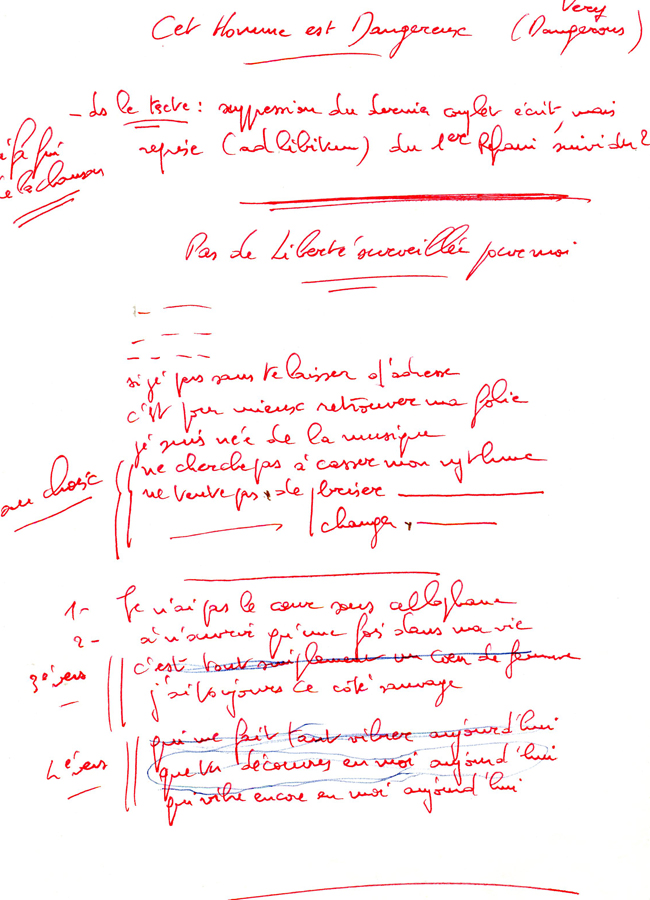 Cet Homme est Dangereux (Very Dangerous)
- ds le texte : suppression du dernier couplet écrit, mais
reprise (ad libitum) du 1er Refrain, suivi du 2
la chanson
Pas de Liberté surveillée pour moi
si je pars sans te laisser d'adresse
c'est pour mieux retrouver ma folie
je suis née de la musique
au choix
ne cherche pas à casser mon rythme
ne tente pas de briser
changer
1- Je n'ai pas le cœur sous cellophane
2- à n'ouvrir qu'une fois dans ma vie
3e vers
c'est tout simplement un cœur de femme
j'ai toujours ce côté sauvage
4e vers
qui me fait tant vibrer aujourd'hui
que tu découvres en moi aujourd'hui
qui vibre encore en moi aujourd'hui